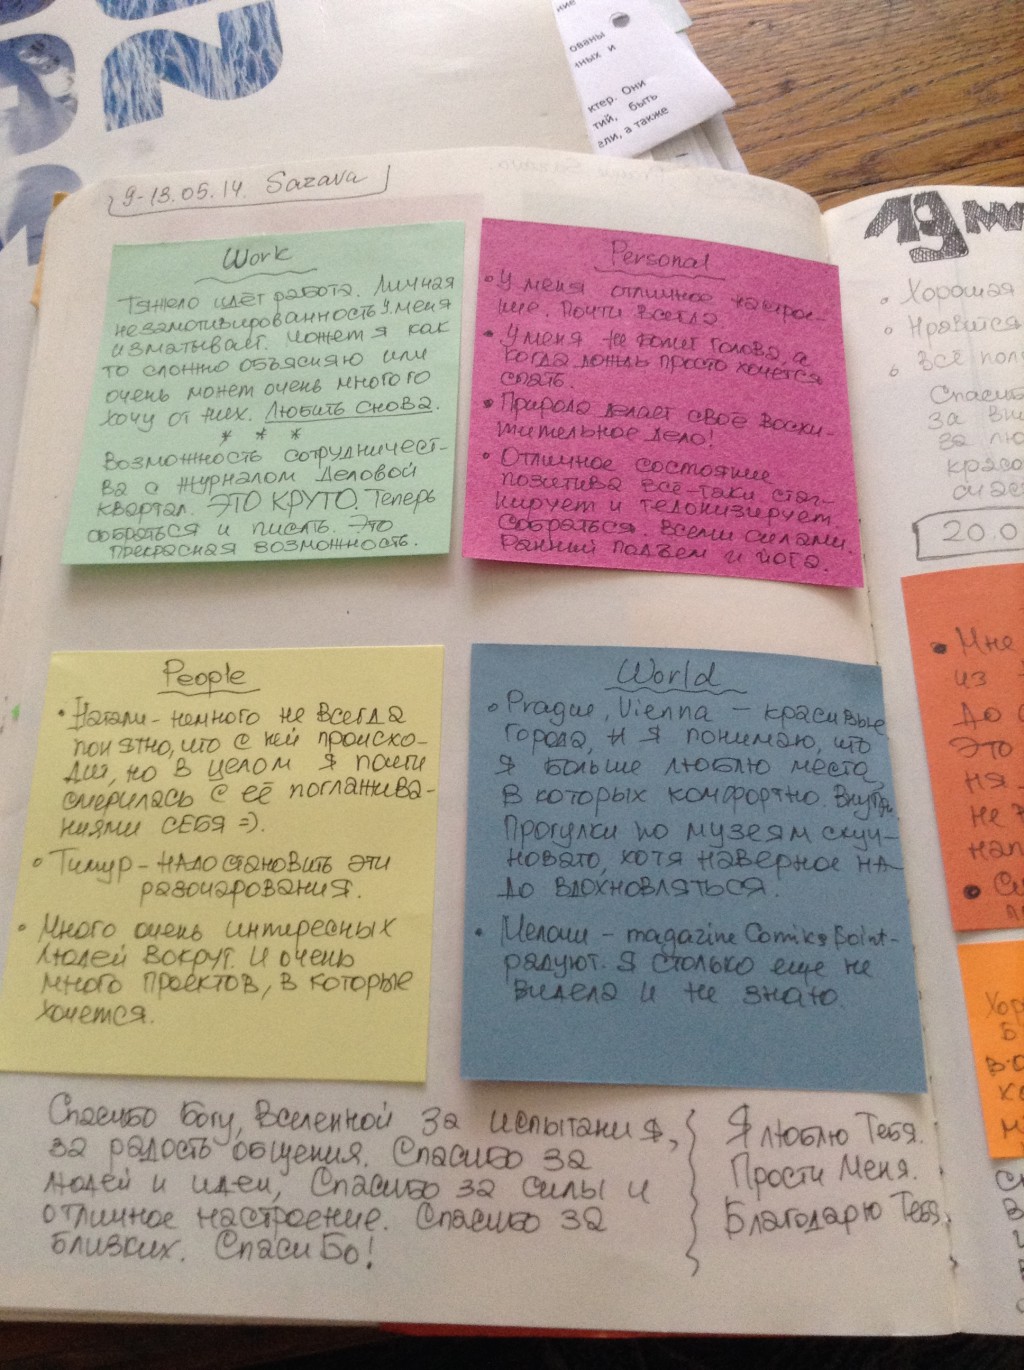 ованы
нных и
ктер. Они
тий, быть
ели, а также
9-13.05.14. Sazava
Work
Тяжело идёт работа. Личная
незамотивированность у меня
изматывает. Может я как
то сложно объясняю или
очень может очень многого
хочу от них. Любить снова.
* * *
Возможность сотрудничест-
ва с журналом Деловой
квартал. ЭТО КРУТО. Теперь
собраться и писать. Это
прекрасная возможность.
Personal
• У меня отличное настрое-
ние. Почти всегда.
• У меня не болит голова, а
когда дождь просто хочется
спать.
• Природа делает своё восхи-
тительное дело!
• Отличное состояние
позитива всё-таки стаг-
нирует и
Собраться. Всеми силами.
Ранний подъем и йога.
People
• Натали - немного не всегда
понятно, что с ней происхо-
дит, но в целом я почти
смерилась с её поглажива-
ниями СЕБЯ =).
• Тимур - НАДО становить эти
разочарования.
• Много очень интересных
людей вокруг. И очень
много проектов, в которые
хочется.
World
• Prague, Vienna - красивые
города, и я понимаю, что
я больше люблю места,
в которых комфортно. Внутри.
Прогулки по музеям скуч-
новато, хотя наверное на-
до вдохновляться.
• Мелочи - magazine Comics Point -
радуют. Я столько еще не
видела и не знаю.
Спасибо Богу, Вселенной за испытания,
за радость общения. Спасибо за
людей и идеи, Спасибо за силы и
отличное настроение. Спасибо за
близких. Спасибо!
Я люблю Тебя.
Прости Меня.
Благодарю Тебя.
19
• Хорошая
• Нравится
Спасибо
за
20.0
• Мне
из
до
Это
ня
не
•